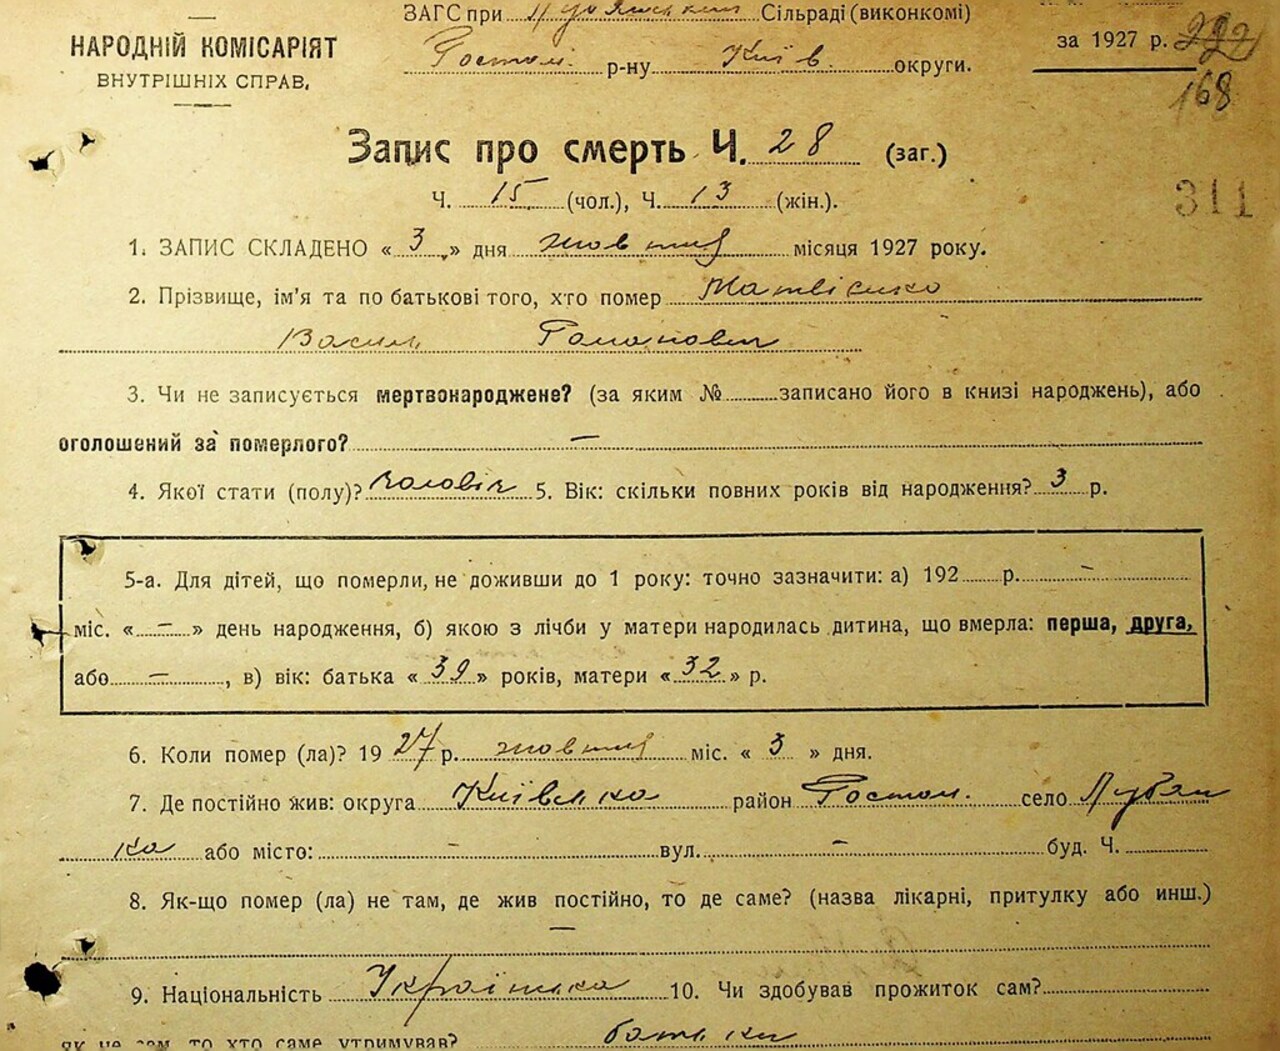 ЗАГС при Лубянський Сільраді (виконкомі)
НАРОДНІЙ КОМІСАРІЯТ
ВНУТРІШНІХ СПРАВ,
Гостом. р-ну Київ. округи.
за 1927 р. 222
168
Запис про смерть Ч. 28 (заг.)
Ч. 15 (чол.), Ч. 13 (жін.).
311
1. ЗАПИС СКЛАДЕНО « 3 » дня жовтня місяця 1927 року.
2. Прізвище, ім'я та по батькові того, хто помер Матвієнко
Василь Романович
3. Чи не записується мертвонароджене? (за яким № записано його в книзі народжень), або
оголошений за померлого? —
4. Якої стати (полу)? чоловіч 5. Вік: скільки повних років від народження? 3 р.
5-а. Для дітей, що померли, не доживши до 1 року: точно зазначити: а) 192 р. —
міс. « — » день народження, б) якою з лічби у матери народилась дитина, що вмерла: перша, друга,
або — , в) вік: батька « 39 » років, матери « 32 » р.
6. Коли помер (ла)? 19 27 р. жовтня міс. « 3 » дня.
7. Де постійно жив: округа Київська район Гостом. село Лубян
ка або місто: — вул. — буд. Ч.
8. Як-що помер (ла) не там, де жив постійно, то де саме? (назва лікарні, притулку або инш.)
—
9. Національність Українська 10. Чи здобував прожиток сам?
як не сам, то хто саме утримував? батьки